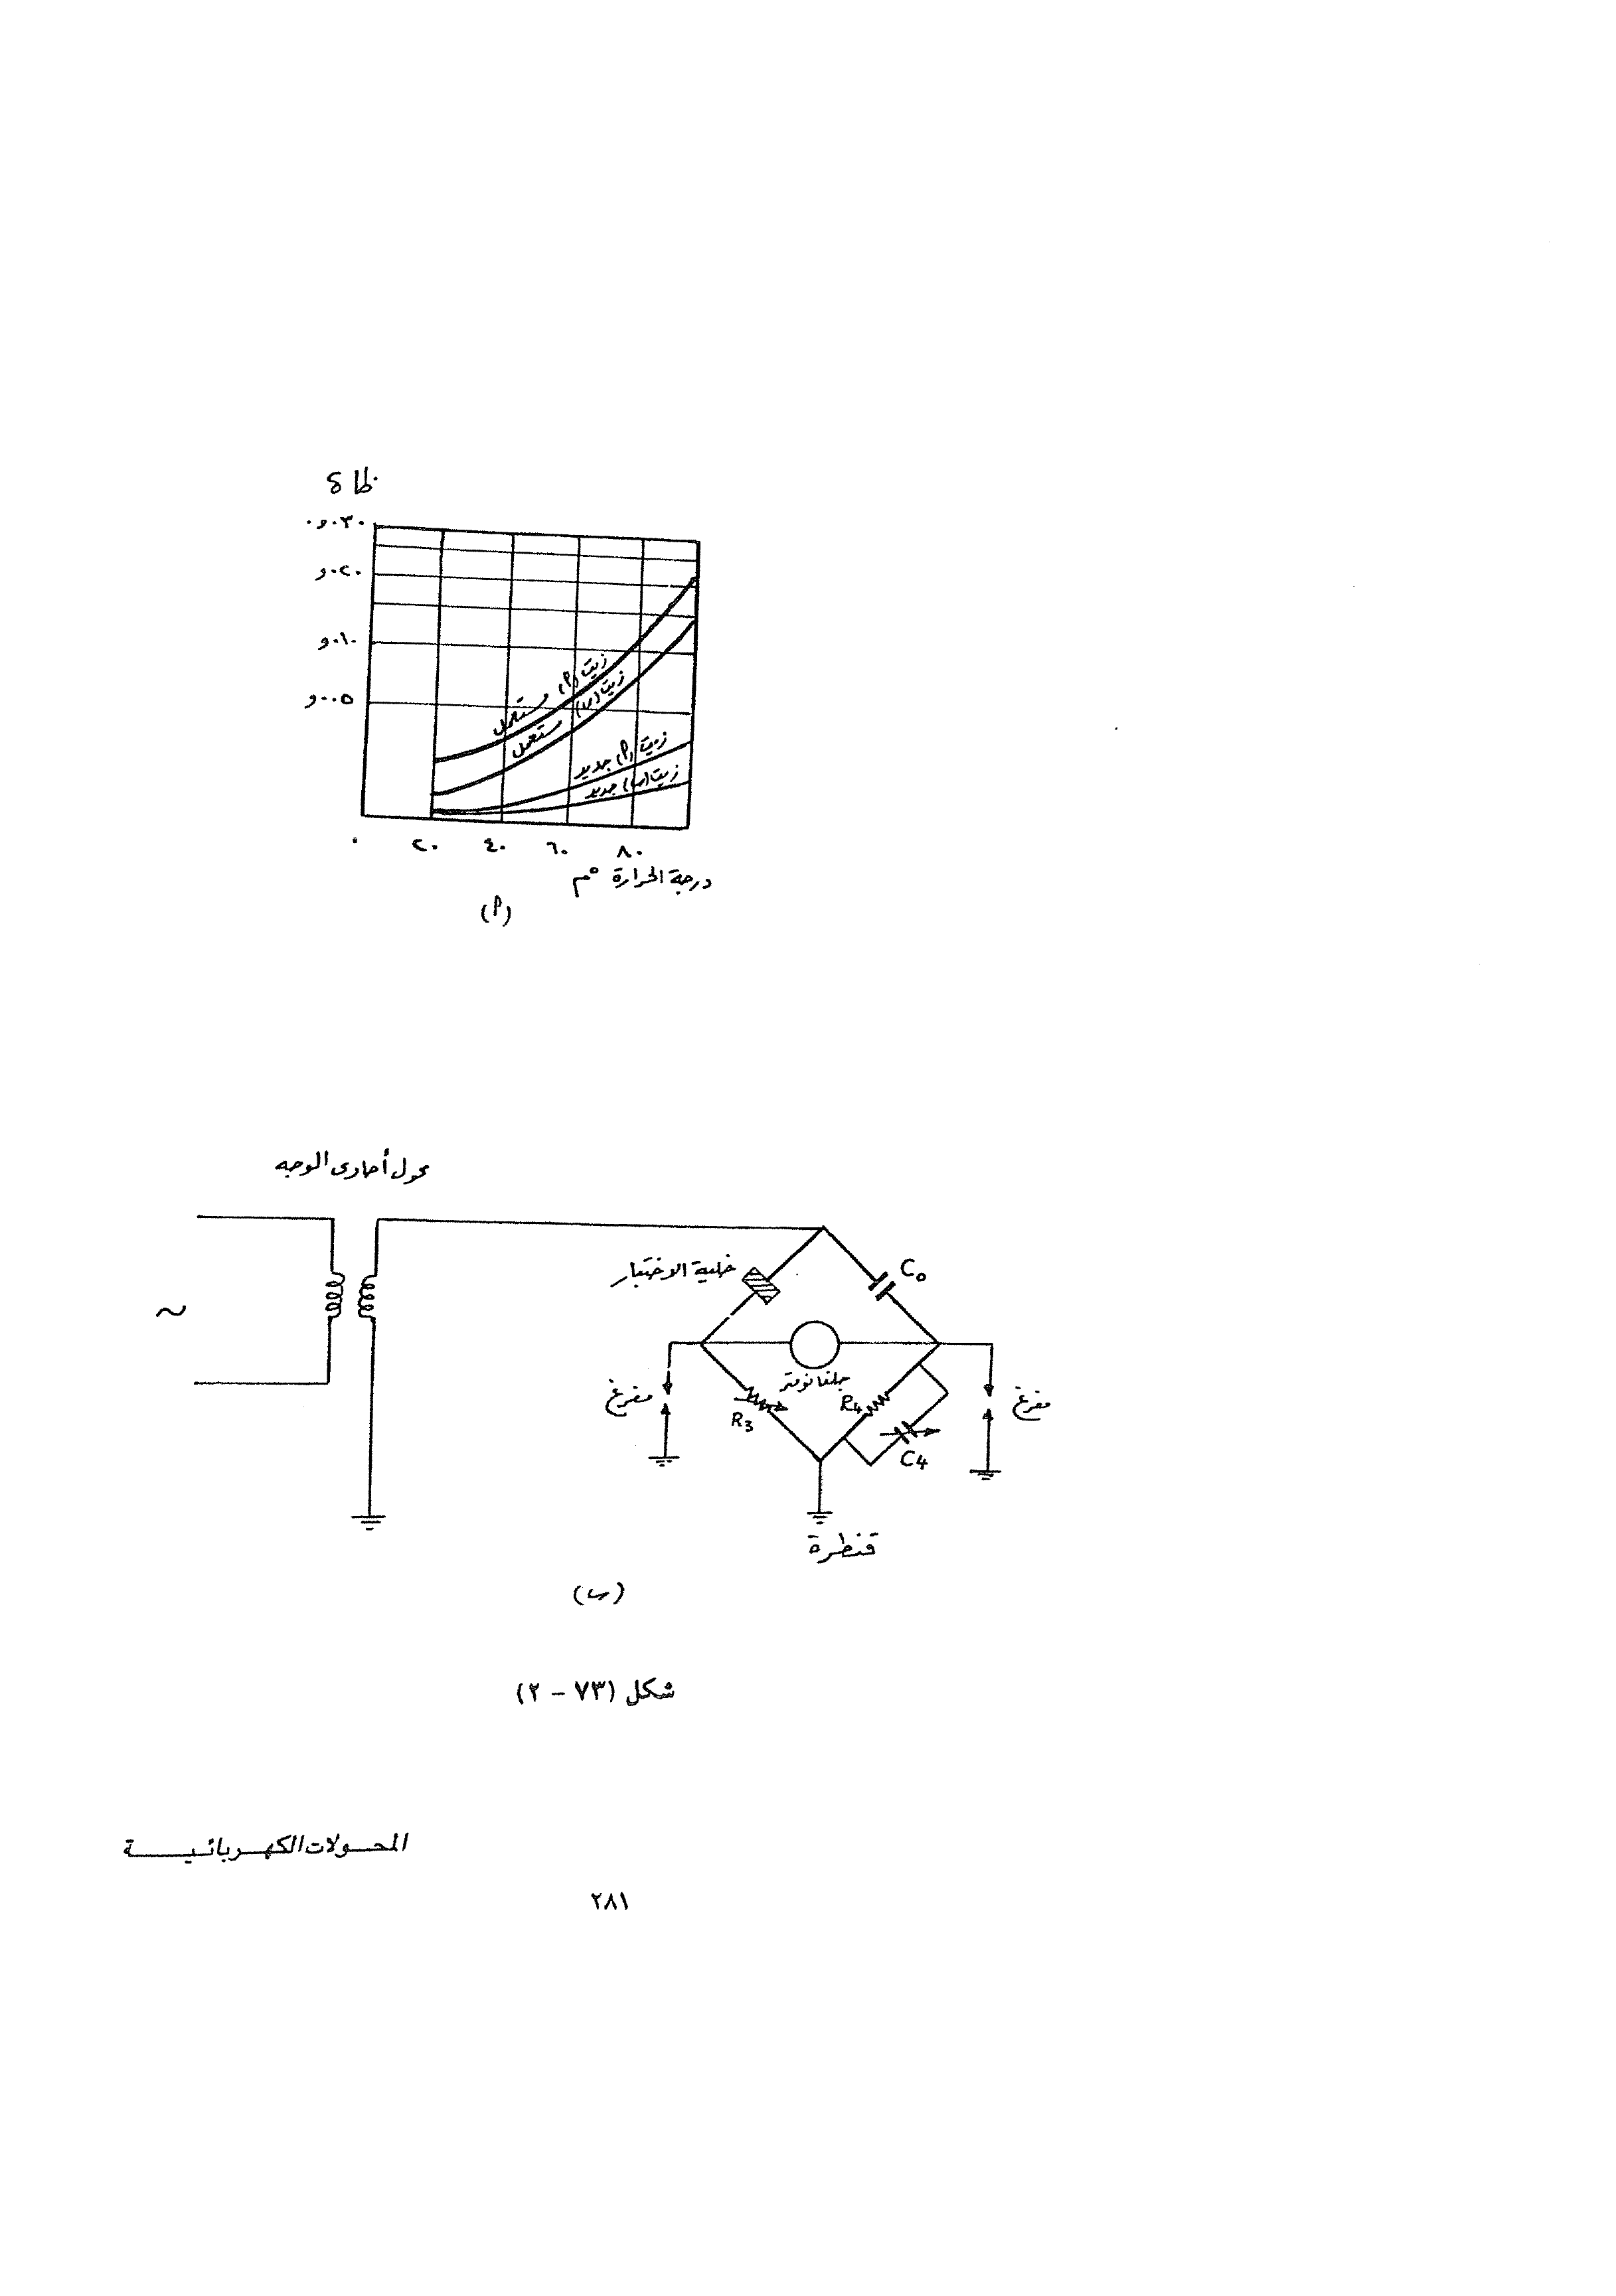 ظا δ
٠٫٠٣٠
٠٢٠٫و
٠١٠٫و
٠٠٥٫و
زيت (أ) مستعمل
زيت (ب) مستعمل
زيت (أ) جديد
زيت (ب) جديد
٠ ٢٠ ٤٠ ٦٠ ٨٠
درجة الحرارة °م
(أ)
محول أحادى الوجه
~
خلية الاختبار
C₀
جلفانومتر
مفرغ
R₃
R₄
C₄
مفرغ
قنطرة
(ب)
شكل (٧٣ – ٢)
المحولات الكهربائية
٢٨١